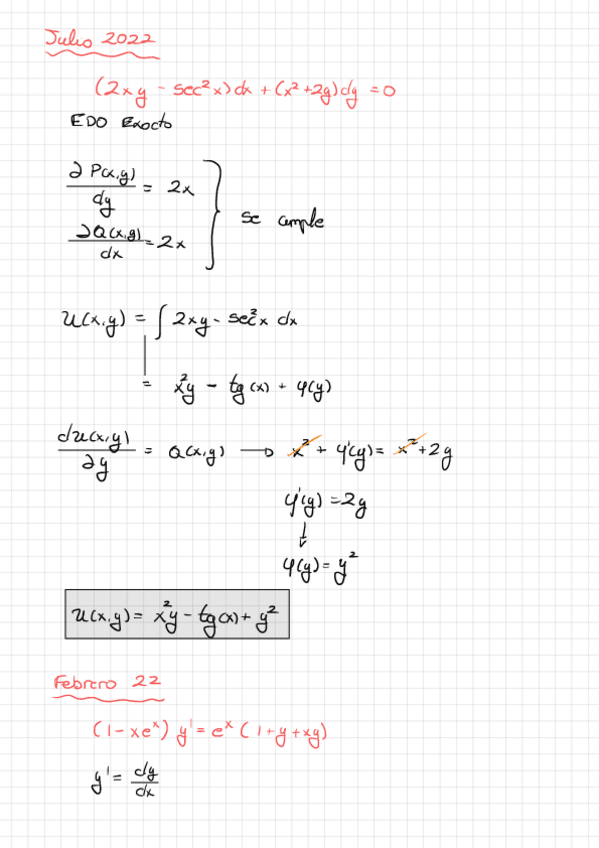 Julio 2022
(2xy - sec²x)dx + (x² + 2y)dy = 0
EDO Exacta
∂P(x,y)/dy = 2x
∂Q(x,y)/dx = 2x
se cumple
u(x,y) = ∫ 2xy - sec²x dx
= x²y - tg(x) + φ(y)
du(x,y)/∂y = Q(x,y) → x² + φ'(y) = x² + 2y
φ'(y) = 2y
↓
φ(y) = y²
u(x,y) = x²y - tg(x) + y²
Febrero 22
(1 - xeˣ) y' = eˣ (1 + y + xy)
y' = dy/dx